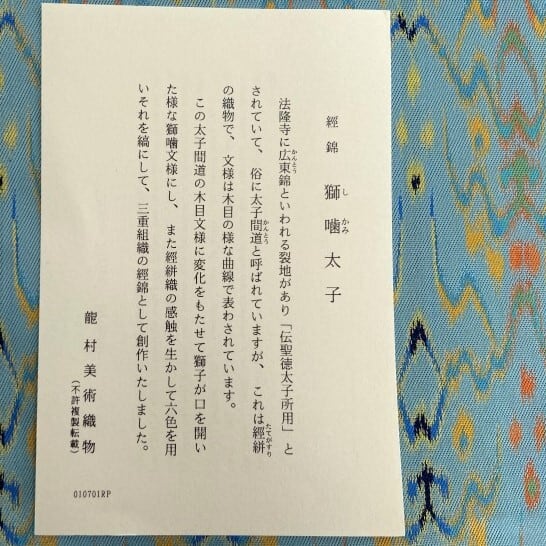 經錦 獅噛太子
法隆寺に広東錦といわれる裂地があり「伝聖徳太子所用」と
されていて、俗に太子間道と呼ばれていますが、これは經絣
の織物で、文様は木目の様な曲線で表わされています。
この太子間道の木目文様に変化をもたせて獅子が口を開い
た様な獅噛文様にし、また經絣織の感触を生かして六色を用
いそれを縞にして、三重組織の經錦として創作いたしました。
龍村美術織物
(不許複製転載)
010701RP